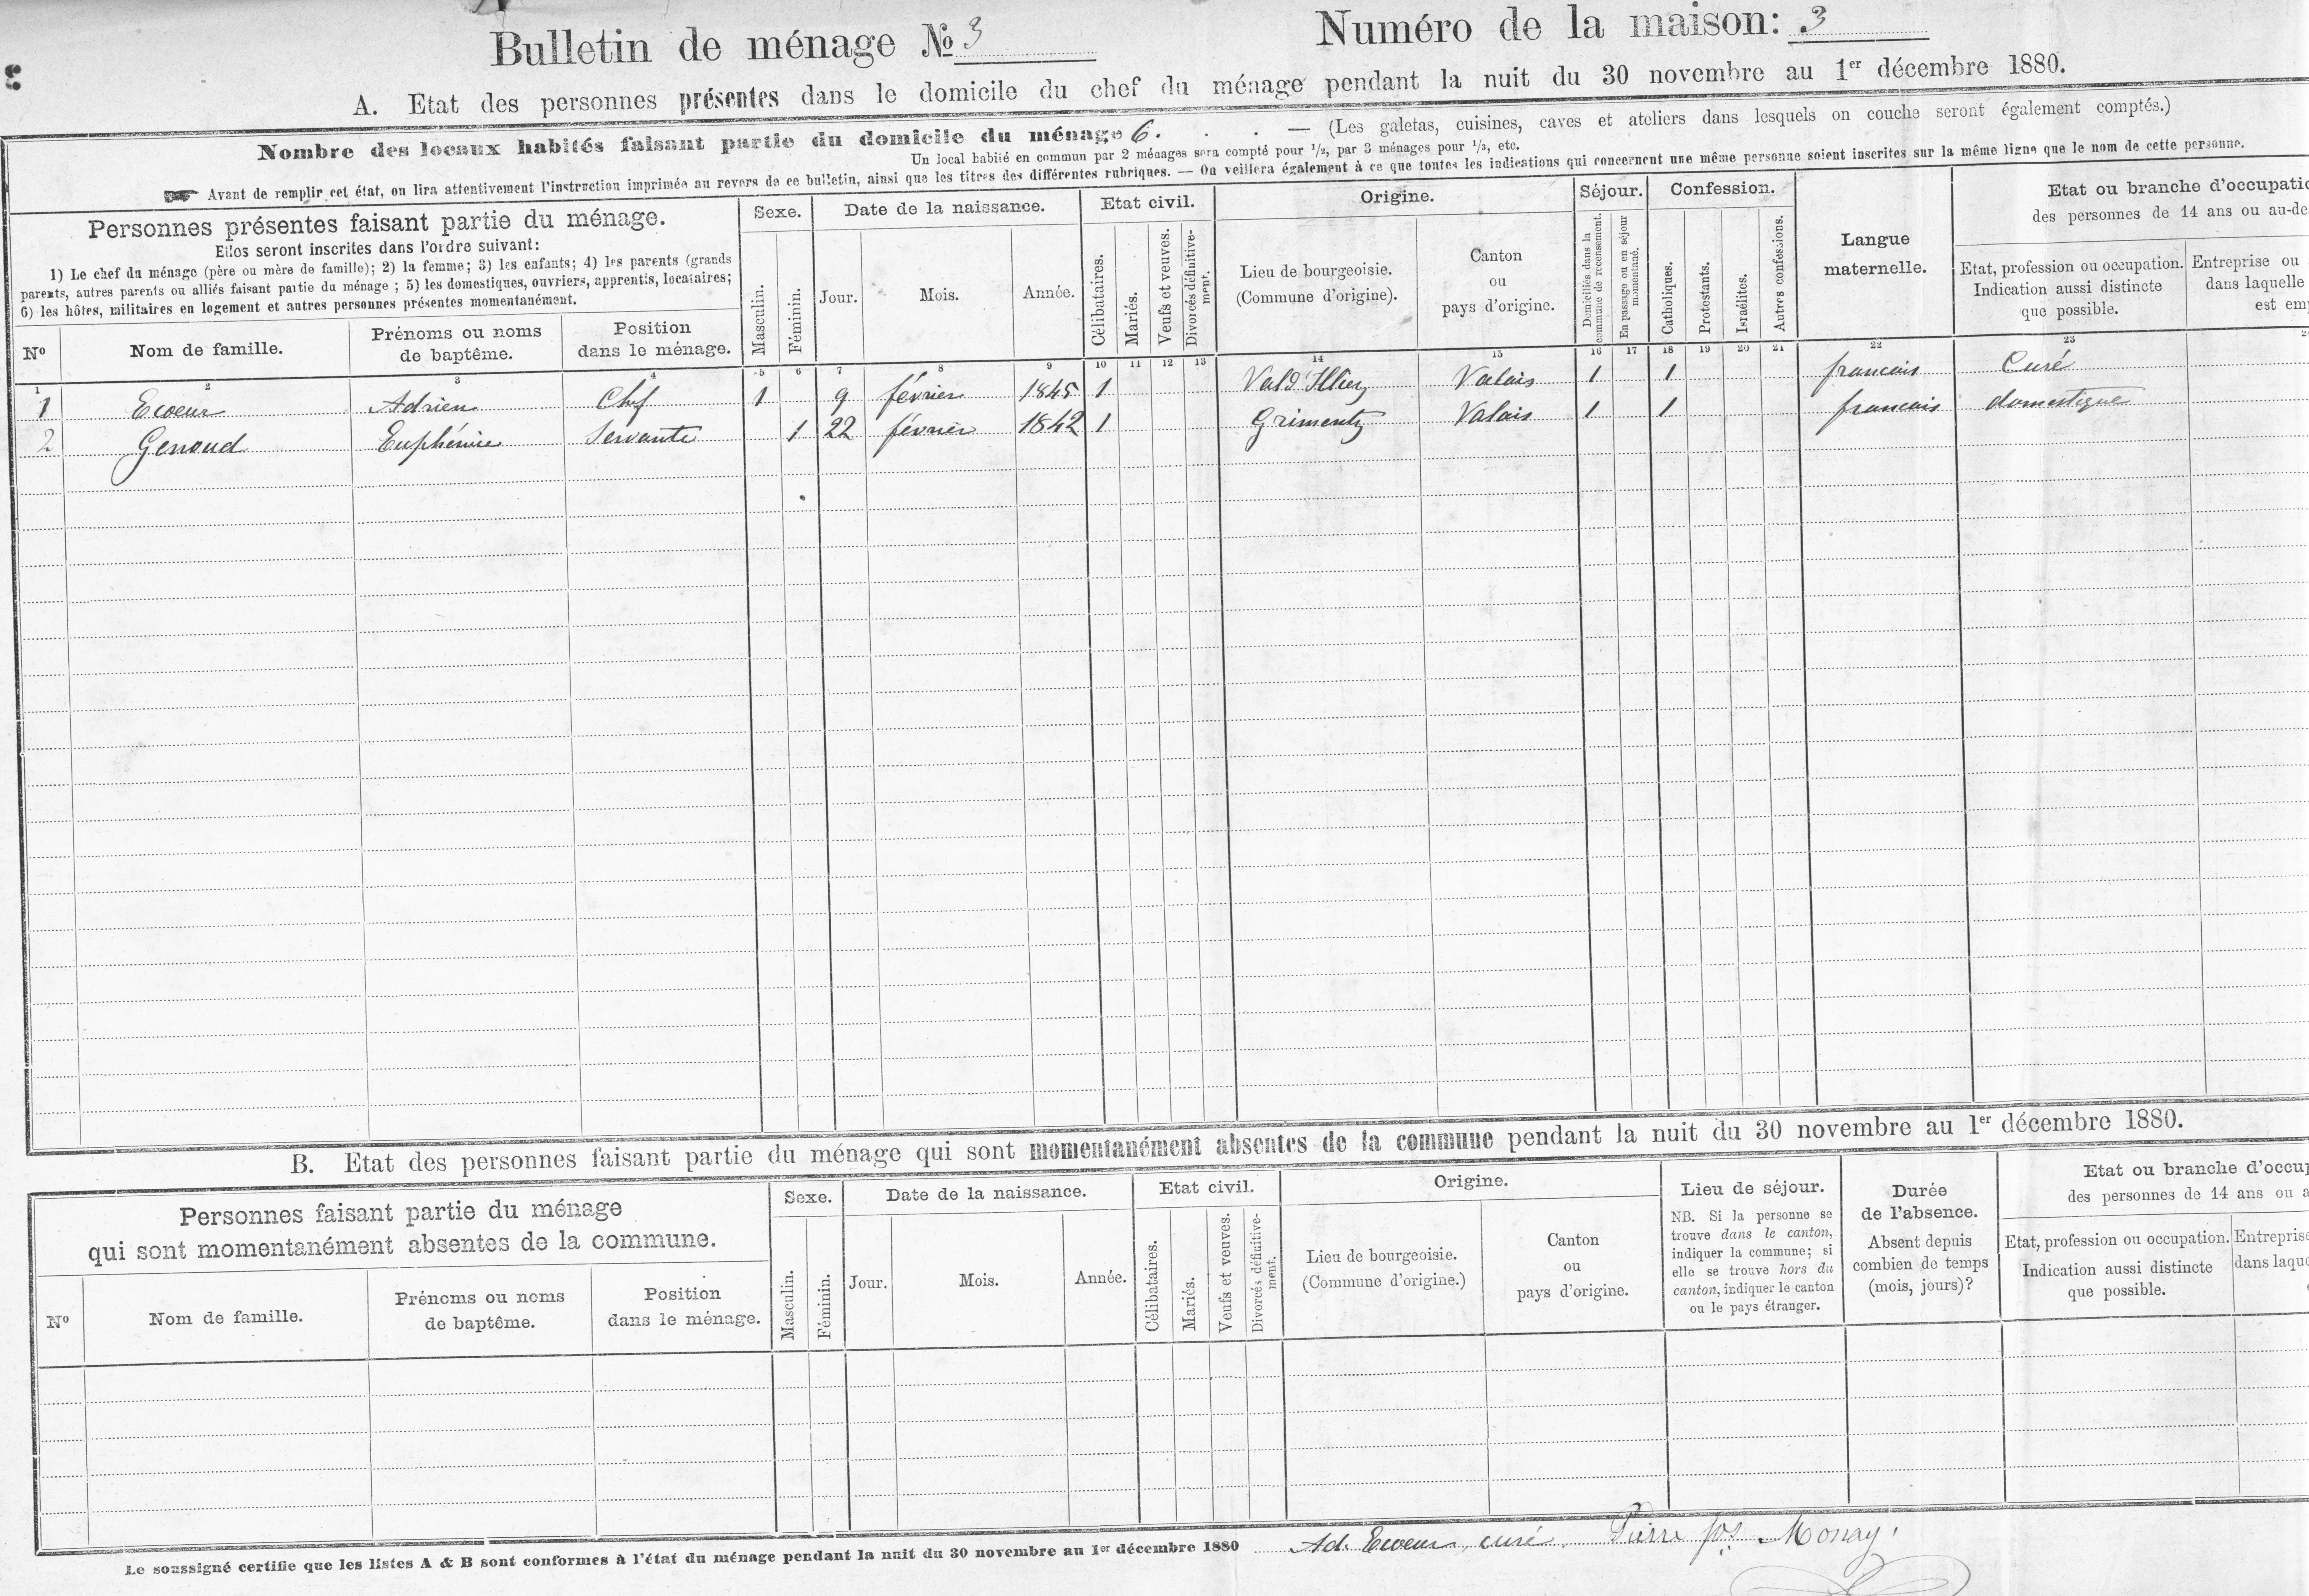 Bulletin de ménage No 3 Numéro de la maison: 3
A. Etat des personnes présentes dans le domicile du chef du ménage pendant la nuit du 30 novembre au 1er décembre 1880.
Nombre des locaux habités faisant partie du domicile du ménage 6. . . — (Les galetas, cuisines, caves et ateliers dans lesquels on couche seront également comptés.)
Un local habité en commun par 2 ménages sera compté pour 1/2, par 3 ménages pour 1/3, etc.
Avant de remplir cet état, on lira attentivement l'instruction imprimée au revers de ce bulletin, ainsi que les titres des différentes rubriques. — On veillera également à ce que toutes les indications qui concernent une même personne soient inscrites sur la même ligne que le nom de cette personne.
Personnes présentes faisant partie du ménage.
Elles seront inscrites dans l'ordre suivant:
1) Le chef du ménage (père ou mère de famille); 2) la femme; 3) les enfants; 4) les parents (grands
parents, autres parents ou alliés faisant partie du ménage ; 5) les domestiques, ouvriers, apprentis, locataires;
6) les hôtes, militaires en logement et autres personnes présentes momentanément.
No
Nom de famille.
Prénoms ou noms
de baptême.
Position
dans le ménage.
Sexe.
Masculin.
Féminin.
Date de la naissance.
Jour.
Mois.
Année.
Etat civil.
Célibataires.
Mariés.
Veufs et veuves.
Divorcés définitive-
ment.
Origine.
Lieu de bourgeoisie.
(Commune d'origine).
Canton
ou
pays d'origine.
Séjour.
Domiciliés dans la
commune de recensement.
En passage ou en séjour
momentané.
Confession.
Catholiques.
Protestants.
Israélites.
Autres confessions.
Langue
maternelle.
Etat ou branche d'occupatio
des personnes de 14 ans ou au-de
Etat, profession ou occupation.
Indication aussi distincte
que possible.
Entreprise ou
dans laquelle
est emp
1 2 3 4 5 6 7 8 9 10 11 12 13 14 15 16 17 18 19 20 21 22 23 2
1 Ecoeur Adrien Chef 1 9 février 1845 1 Val d'Illiez Valais 1 1 francais Curé
2 Genoud Euphémie Servante 1 22 février 1842 1 Grimentz Valais 1 1 francais domestique
B. Etat des personnes faisant partie du ménage qui sont momentanément absentes de la commune pendant la nuit du 30 novembre au 1er décembre 1880.
Personnes faisant partie du ménage
qui sont momentanément absentes de la commune.
No
Nom de famille.
Prénoms ou noms
de baptême.
Position
dans le ménage.
Sexe.
Masculin.
Féminin.
Date de la naissance.
Jour.
Mois.
Année.
Etat civil.
Célibataires.
Mariés.
Veufs et veuves.
Divorcés définitive-
ment.
Origine.
Lieu de bourgeoisie.
(Commune d'origine.)
Canton
ou
pays d'origine.
Lieu de séjour.
NB. Si la personne se
trouve dans le canton,
indiquer la commune; si
elle se trouve hors du
canton, indiquer le canton
ou le pays étranger.
Durée
de l'absence.
Absent depuis
combien de temps
(mois, jours)?
Etat ou branche d'occup
des personnes de 14 ans ou a
Etat, profession ou occupation.
Indication aussi distincte
que possible.
Entreprise
dans laqu
Le soussigné certifie que les listes A & B sont conformes à l'état du ménage pendant la nuit du 30 novembre au 1er décembre 1880 Ad. Ecoeur, curé. Pierre Jos. Monay